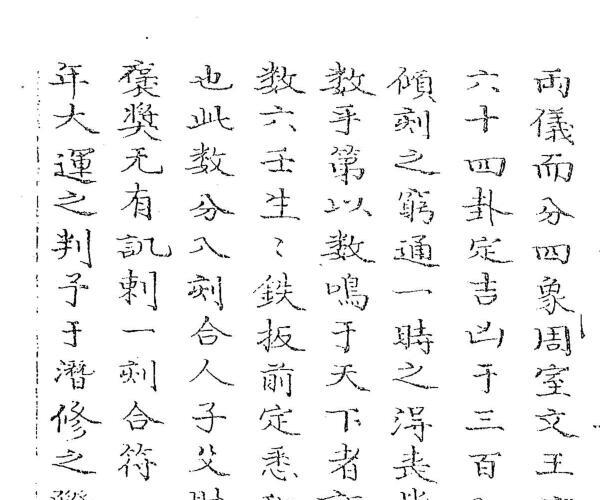 両儀而分四象周室文王
六十四卦定吉凶于三百
傾刻之窮通一時之淂丧
数乎第以数鳴于天下者
数六壬生〻鉄扳前定悉
也此数分八刻合人子父
褒奨无有訊剌一刻合符
年大運之判予于潛修之